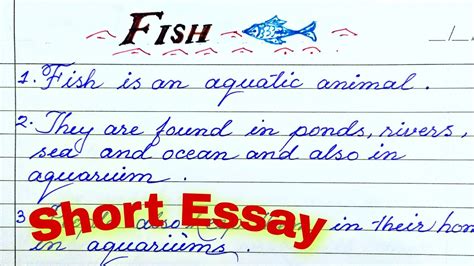 FISH
_/_/
1. Fish is an aquatic animal.
2. They are found in ponds, rivers,
sea and ocean and also in
aquarium.
3 also in their hom
in aquariums.
Short Essay